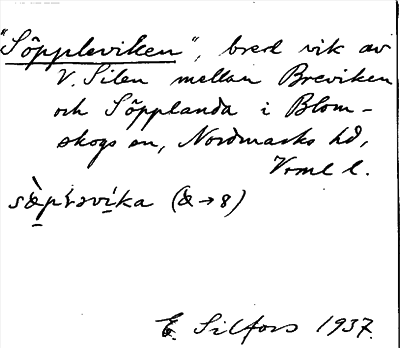 "Söppleviken", bred vik av
V. Silen mellan Breviken
och Söpplanda i Blom-
skogs sn, Nordmarks hd,
Vrml l.
E. Silfors 1937.